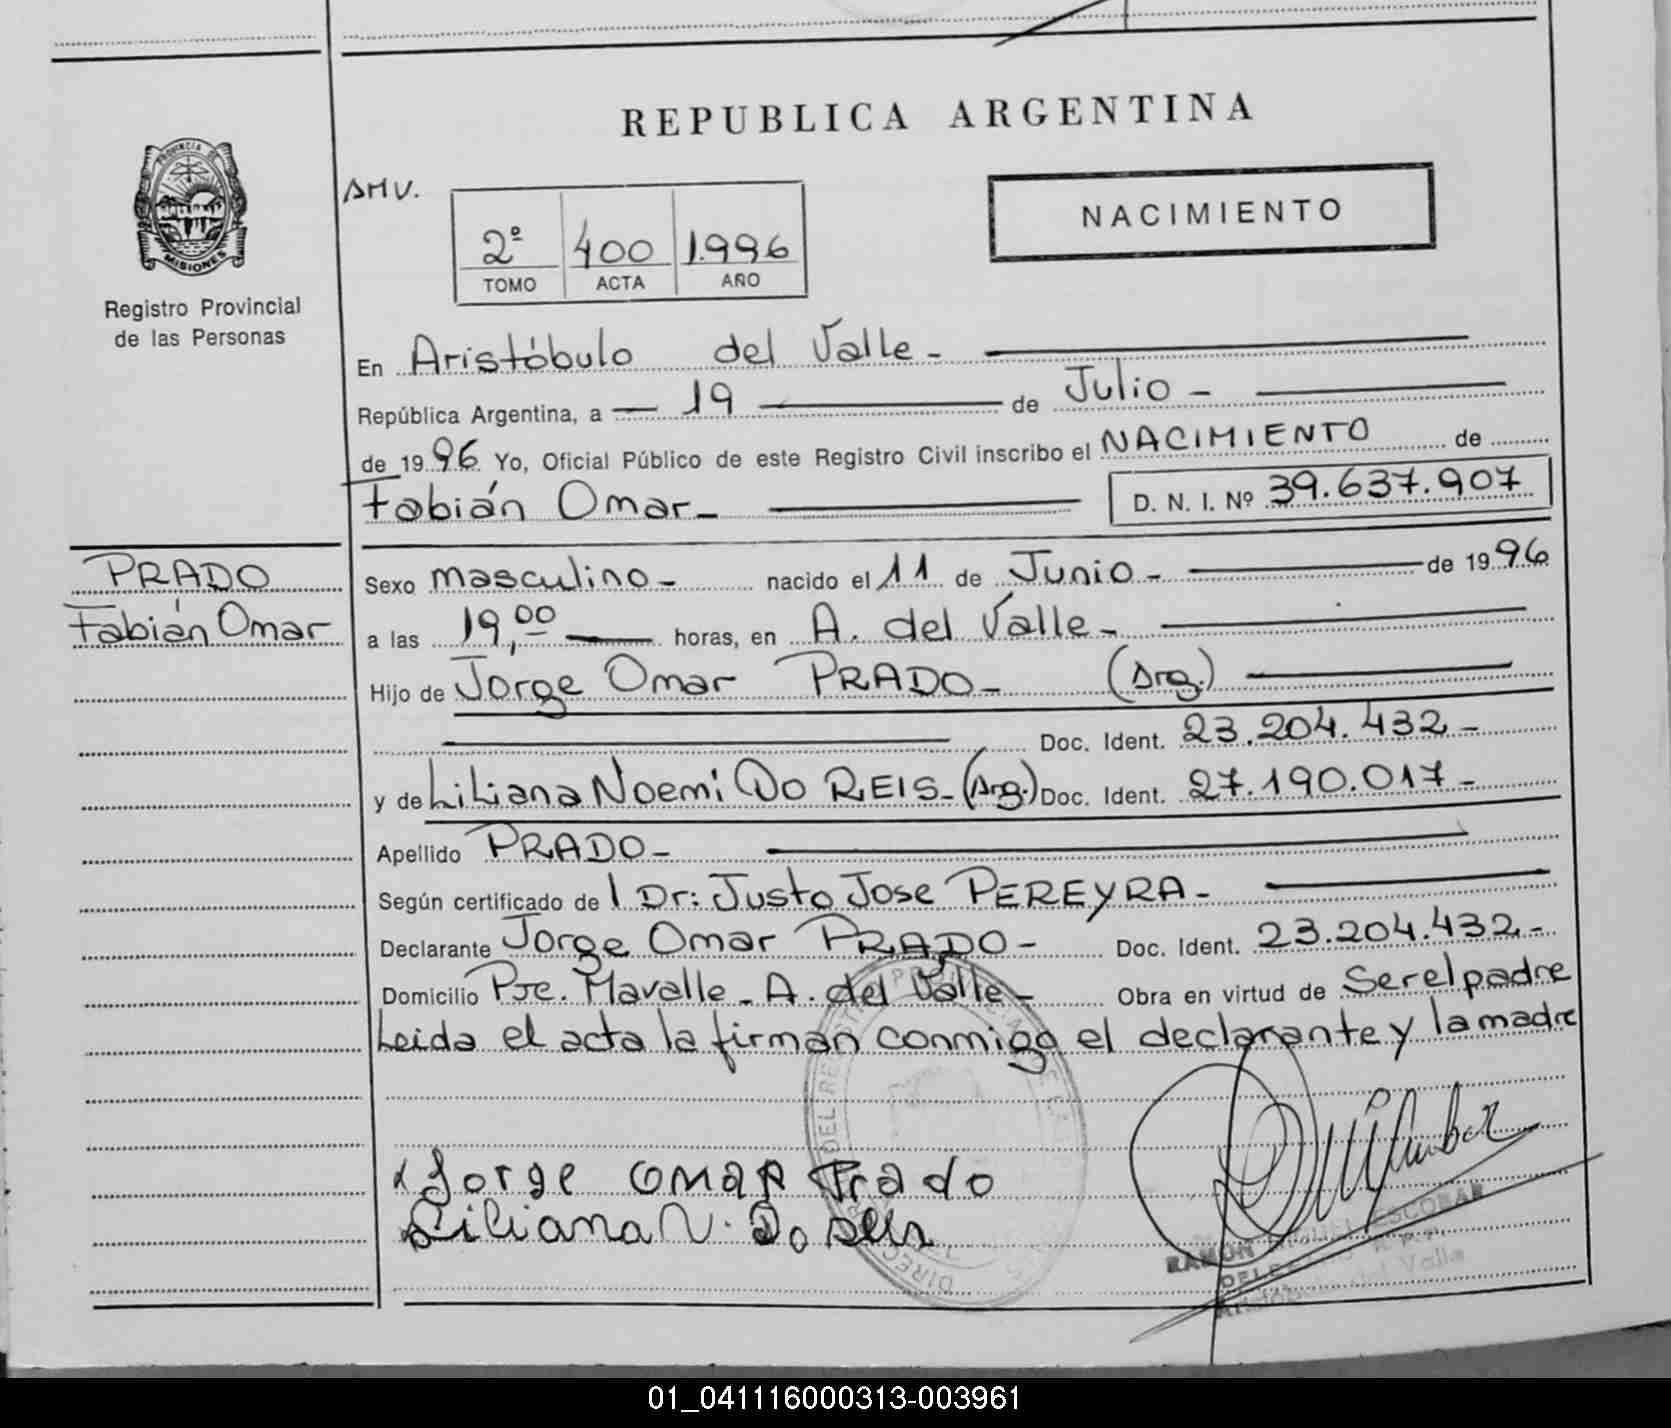 REPUBLICA ARGENTINA
PROVINCIA DE
MISIONES
Registro Provincial
de las Personas
AMV.
2º 400 1.996
TOMO ACTA AÑO
NACIMIENTO
En Aristóbulo del Valle-
República Argentina, a 19 de Julio-
de 1996 Yo, Oficial Público de este Registro Civil inscribo el NACIMIENTO de
Fabián Omar- D. N. I. Nº 39.637.907
PRADO
Fabián Omar
Sexo masculino- nacido el 11 de Junio- de 1996
a las 19,00 horas, en A. del Valle-
Hijo de Jorge Omar PRADO- (Arg.)
Doc. Ident. 23.204.432-
y de Liliana Noemi DO REIS-(Arg.) Doc. Ident. 27.190.017-
Apellido PRADO-
Según certificado de l Dr: Justo Jose PEREYRA-
Declarante Jorge Omar PRADO- Doc. Ident. 23.204.432-
Domicilio Pje. Mavalle-A. del Valle- Obra en virtud de Ser el padre
Leida el acta la firman conmigo el declarante y la madre
x Jorge OMAR Prado
Liliana N. Do Reis
RAMON MIGUEL ESCOBAR
01_041116000313-003961